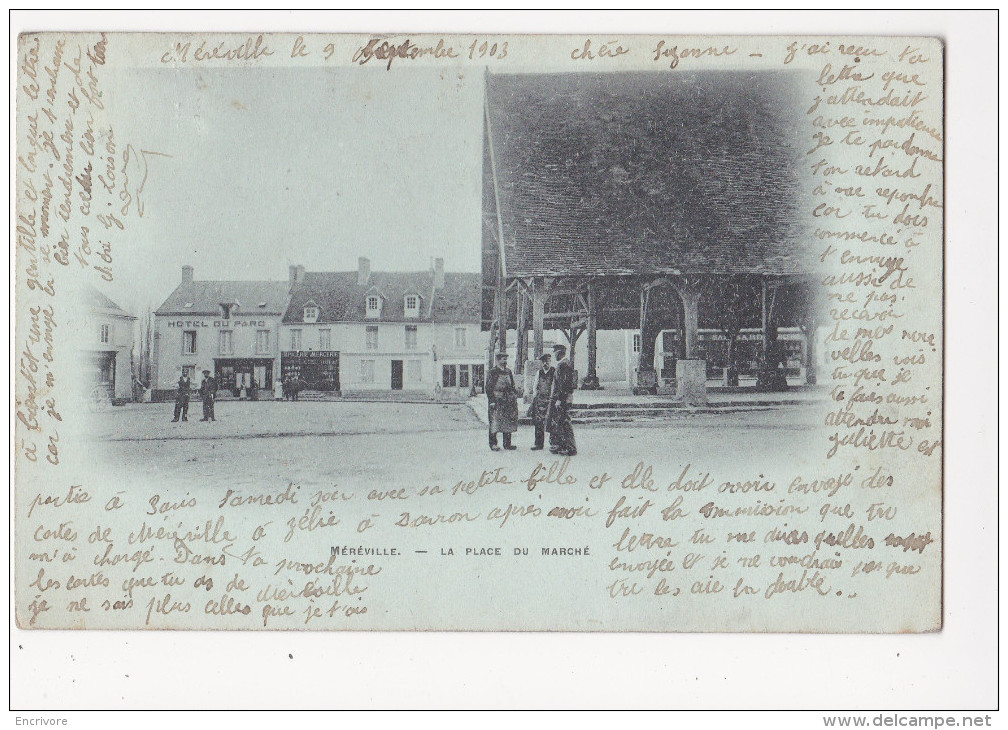 Méréville le 9 Septembre 1903 chère Suzanne – J'ai reçu ta
lettre que
j'attendait
avec impatience
Je te pardonne
ton retard
à me repondre
car tu dois
commencé à
t'ennuyé
aussi de
ne pas
recevoir
de mes nou
velles vois
tu que je
attendre moi
Juliette est
partie à Paris Samedi soir avec sa petite fille et elle doit avoir envoyé des
cartes de Méréville à Zélie à Davron après avoir fait la commission que tu
m'à chargé. Dans ta prochaine
lettre tu me diras quelles
les cartes que tu as de Méréville
envoyée et je ne voudrais pas que
je ne sais plus celles que je t'ais
tu les aie en double...
à bientôt une gentille et longue lettre
car je m'ennuye en ce moment. Je t'embrasse
bien tendrement et de
tous côtés bien fort ton
chéri G. Loison
HOTEL DU PARC
EPICERIE MERCERIE
MÉRÉVILLE. — LA PLACE DU MARCHÉ
Encrivore
www.delcampe.net